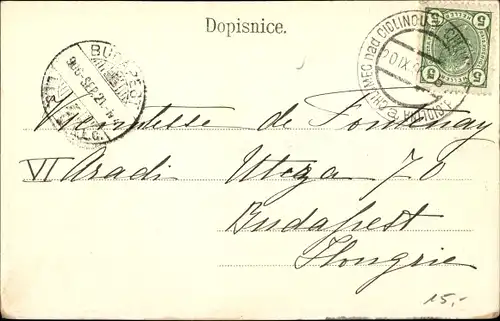 Dopisnice.
BUDAPEST
906 SEP. 21.
CHLUMEC nad CIDLINOU
20 IX
5 HELLER 5
Vicomtesse de Fontenay
VI Aradi Utcza 70
Budapest
Hongrie
15,-